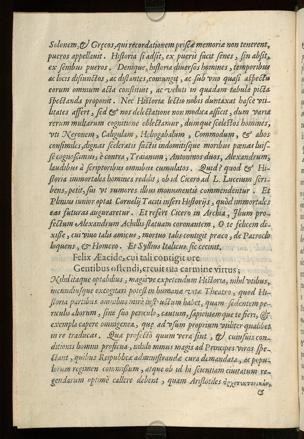 Solonem, & Græcos, qui recordationem priscæ memoriæ non tenerent,
pueros appellauit. Historia si adsit, ex pueris facit senes, sin absit,
ex senibus pueros. Denique, historia diuersos homines, temporibus
ac locis disiunctos, ac distantes, coniungit, ac sub vno quasi aspectu
eorum omnium acta constituit, ac veluti in quadam tabula picta
spectanda proponit. Nec Historiæ lectio nobis duntaxat hasce vti-
litates affert, sed & nos delectatione non modica afficit, dum varia
rerum multarum cognitione oblectantur, dumque scelestos homines,
vti Neronem, Caligulam, Heliogabalum, Commodum, & alios
consimiles, dignas sceleratis factis indomitisque moribus pœnas luis-
se cognoscimus; è contra, Traianum, Antoninos duos, Alexandrum,
laudibus à scriptoribus omnibus cumulatos. Quid? quod & Hi-
storia immortales homines reddit, & ob id Cicero ad L. Lucceium scri-
bens, petit, suo vt nomores illius monumentis commendentur. Et
Plinius iunior optat Cornelij Taciti inseri Historijs, quòd immortales
eas futuras auguraretur. Et refert Cicero in Archia, Illum pro-
fectum Alexandrum Achillis statuam coronantem, O te felicem di-
xisse, cui viuo talis amicus, mortuo talis contigit præco, de Patroclo
loquens, & Homero. Et Syllius Italicus sic cecinit,
Felix Æacide, cui tali contigit ore
Gentibus ostendi, creuit tua carmine virtus;
Nihil itaque optabilius, magisve expetendum Historia, nihil vtilius,
iucundiusque excogitari potest in humanæ vitæ Theatro, quod Hi-
storia partibus omnibus mirè instructum habet, quam sedentem pe-
riculo aliorum, sine suo periculo, cautum, sapientemque te fieri, &
exempla capere omnigena, quæ ad vsum proprium vtiliter qualibet
in re traducas. Quæ profectò quum vera sint, & cuiusuis con-
ditionis homini proficua, nihilo minus magis ad Principes viros spe-
ctant, quibus Reipublicæ administrandæ cura demandata, ac popu-
lorum regimen commissum, atque ob id hi scientiam ciuitatum re-
gendarum optimè callere debent, quam Aristoteles
&